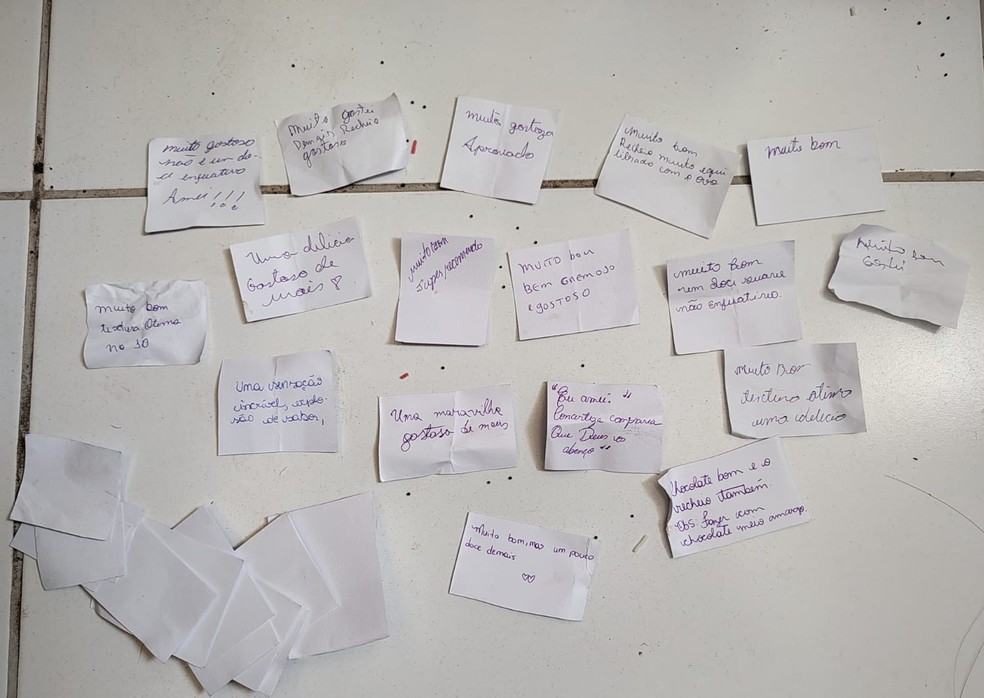 muito gostoso
não é um do-
ce enjuativo
Amei!!!
Muito gostei
Demais Recheio
gostoso
muito gostoza
Aprovado
Muito bom
Recheio muito equi
librado com o ovo
muito bom
Uma delicia
Gostoso de
mais
muito bom
super recomendo
MUITO bom
BEM CREMOSO
e GOSTOSO
muito bom
sem doci suave
não enjuativo.
Muito bom
Gostei
muito bom
textura Otima
No 10
Uma sensação
incrível, explo-
são de sabor,
Uma maravilha
gostoso de mais
"Eu amei"
Comerteza compraria
Que Deus
abençoe"
Muito Bom
textura otima
uma delicio
Chocolate bom e o
recheio também.
Obs: Fazer com
chocolate meio amargo.
Muito bom, mas um pouco
doce demais